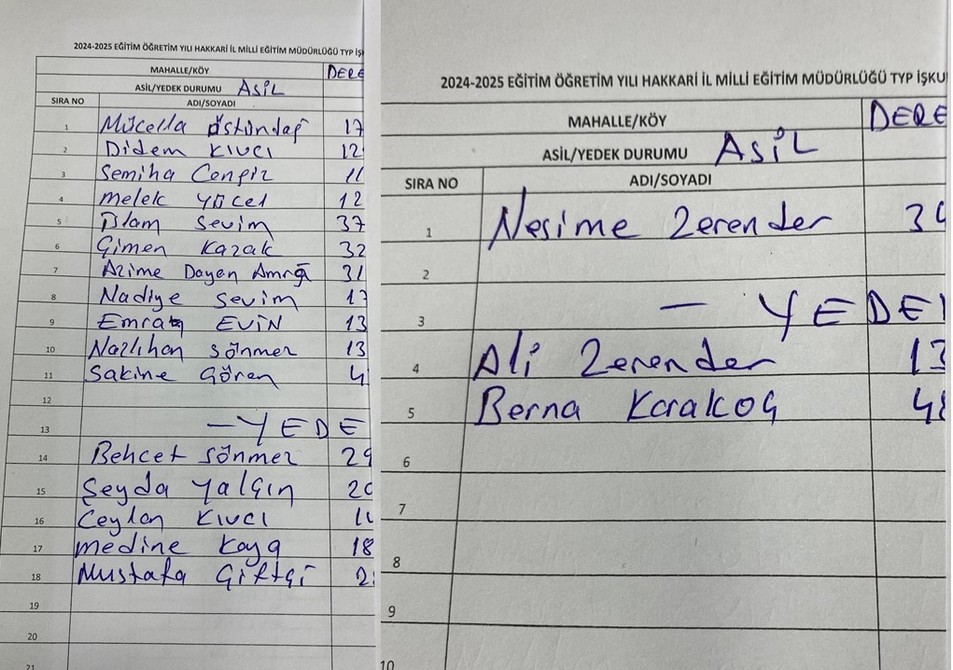 2024-2025 EĞİTİM ÖĞRETİM YILI HAKKARİ İL MİLLİ EĞİTİM MÜDÜRLÜĞÜ TYP İŞ
MAHALLE/KÖY DERE
ASİL/YEDEK DURUMU ASİL
SIRA NO ADI/SOYADI
1 Mücella üstündağ 17
2 Didem KIVCI 12
3 Semiha Cengiz 11
4 Melek yücel 12
5 Sevim 37
6 Çimen Kazak 32
7 Azime Dayan 31
8 Nadiye Sevim 17
9 Emrah EVİN 13
10 Nazlıhan sönmez 13
11 Sakine Gören 4
12
13 — YEDE
14 Behcet sönmez 29
15 Şeyda yalçın 20
16 Ceylan KIVCI
17 medine kaya 18
18 Mustafa Çiftçi 2
19
20
21
2024-2025 EĞİTİM ÖĞRETİM YILI HAKKARİ İL MİLLİ EĞİTİM MÜDÜRLÜĞÜ TYP İŞKU
MAHALLE/KÖY DERE
ASİL/YEDEK DURUMU ASİL
SIRA NO ADI/SOYADI
1 Nesime Zerender 34
2
3 — YEDE
4 Ali Zerender 13
5 Berna Karakoç 48
6
7
8
9
10